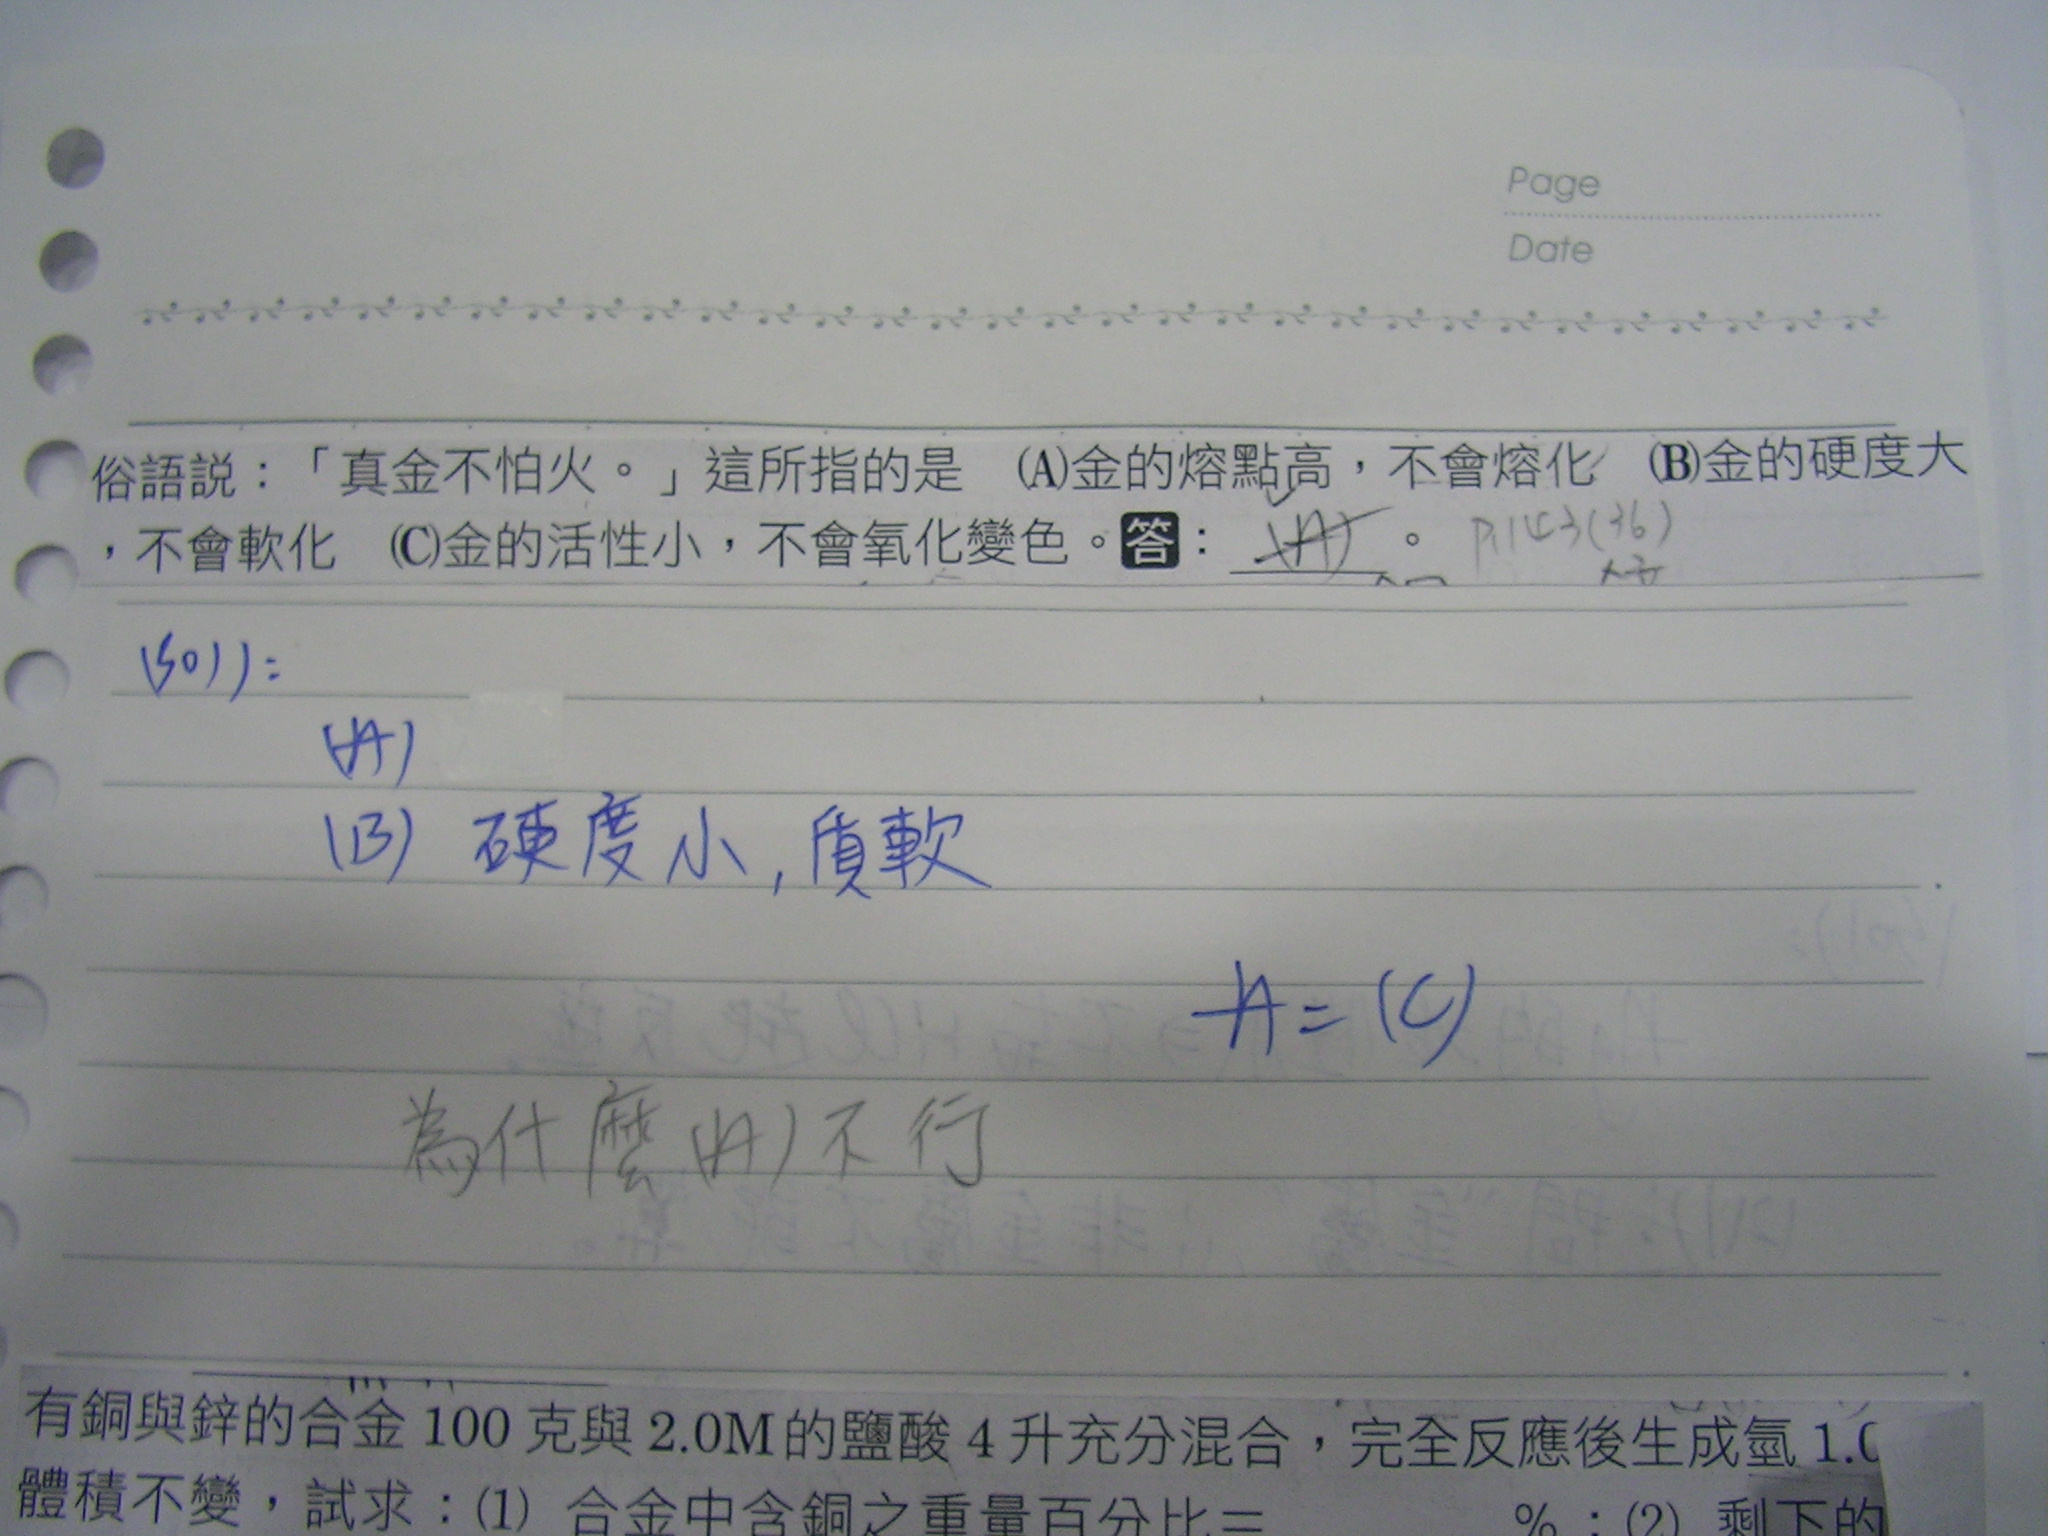 Page
Date
俗語説：「真金不怕火。」這所指的是 (A)金的熔點高，不會熔化 (B)金的硬度大
，不會軟化 (C)金的活性小，不會氧化變色。答： (A) 。
(sol):
(A)
(B) 硬度小,質軟
A=(C)
為什麼(A)不行
有銅與鋅的合金100克與2.0M的鹽酸4升充分混合，完全反應後生成氫1.0
體積不變，試求：(1) 合金中含銅之重量百分比＝ %；(2) 剩下的